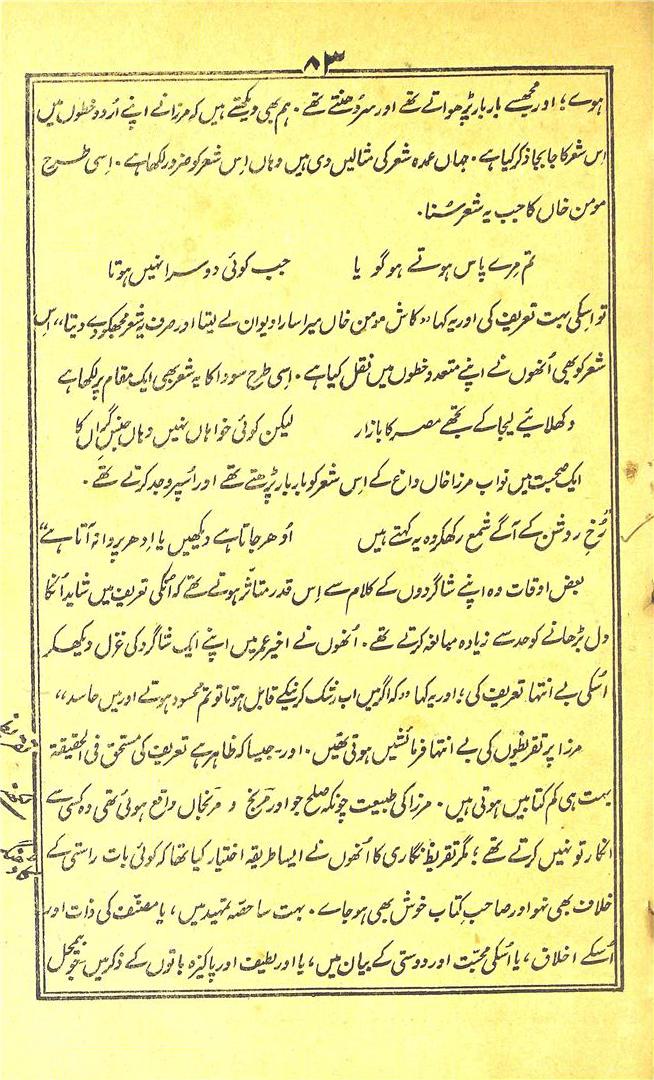 ۸۳
ہوے؛ اور مجھسے بار بار پڑھواتے تھے اور سر دُھنتے تھے۔ ہم بھی دیکھتے ہیں کہ مرزا نے اپنے اُردو خطوں میں
اِس شعر کا جا بجا ذکر کیا ہے۔ جہاں عمدہ شعر کی مثالیں دی ہیں وہاں اِس شعر کو ضرور لکھا ہے۔ اِسی طرح
مومن خاں کا جب یہ شعر سُنا۔
تم مرے پاس ہوتے ہو گویا جب کوئی دوسرا نہیں ہوتا
تو اسکی بہت تعریف کی اور یہ کہا ،،کاش مومن خاں میرا سارا دیوان لے لیتا اور صرف یہ شعر مجھکو دے دیتا،، اِس
شعر کو بھی اُنھوں نے اپنے متعدد خطوں میں نقل کیا ہے۔ اِسی طرح سودا کا یہ شعر بھی ایک مقام پر لکھا ہے
دکھلائیے لیجا کے تجھے مصر کا بازار لیکن کوئی خواہاں نہیں وہاں جنسِ گراں کا
ایک صحبت میں نواب مرزا خاں داغ کے اِس شعر کو بار بار پڑھتے تھے اور اُسپر وجد کرتے تھے۔
"رُخِ روشن کے آگے شمع رکھکر وہ یہ کہتے ہیں اُدھر جاتا ہے دیکھیں یا اِدھر پروانہ آتا ہے"
بعض اوقات وہ اپنے شاگردوں کے کلام سے اِس قدر متاثّر ہوتے تھے کہ اُنکی تعریف میں شاید اُنکا
دل بڑھانے کو حد سے زیادہ مبالغہ کرتے تھے۔ اُنھوں نے اخیر عمر میں اپنے ایک شاگرد کی غزل دیکھکر
اُسکی بے انتہا تعریف کی؛ اور یہ کہا ،،کہ اگر میں اب رشک کرنیکے قابل ہوتا تو تم محسود ہوتے اور میں حاسد،،
مرزا پر تقریظوں کی بے انتہا فرمائشیں ہوتی تھیں۔ اور جیسا کہ ظاہر ہے تعریف کی مستحق فی الحقیقۃ
بہت ہی کم کتابیں ہوتی ہیں۔ مرزا کی طبیعت چونکہ صلح جو اور مَرنج و مَرنجاں واقع ہوئی تھی وہ کسی سے
انکار تو نہیں کرتے تھے؛ مگر تقریظ نگاری کا اُنھوں نے ایسا طریقہ اختیار کیا تھا کہ کوئی بات راستی کے
خلاف بھی نہو اور صاحب کتاب خوش بھی ہو جاے۔ بہت سا حصّہ تمہید میں، یا مصنّف کی ذات اور
اُسکے اخلاق، یا اُسکی محبّت اور دوستی کے بیان میں، یا اور لطیف اور پاکیزہ باتوں کے ذکر میں جو بیمحل